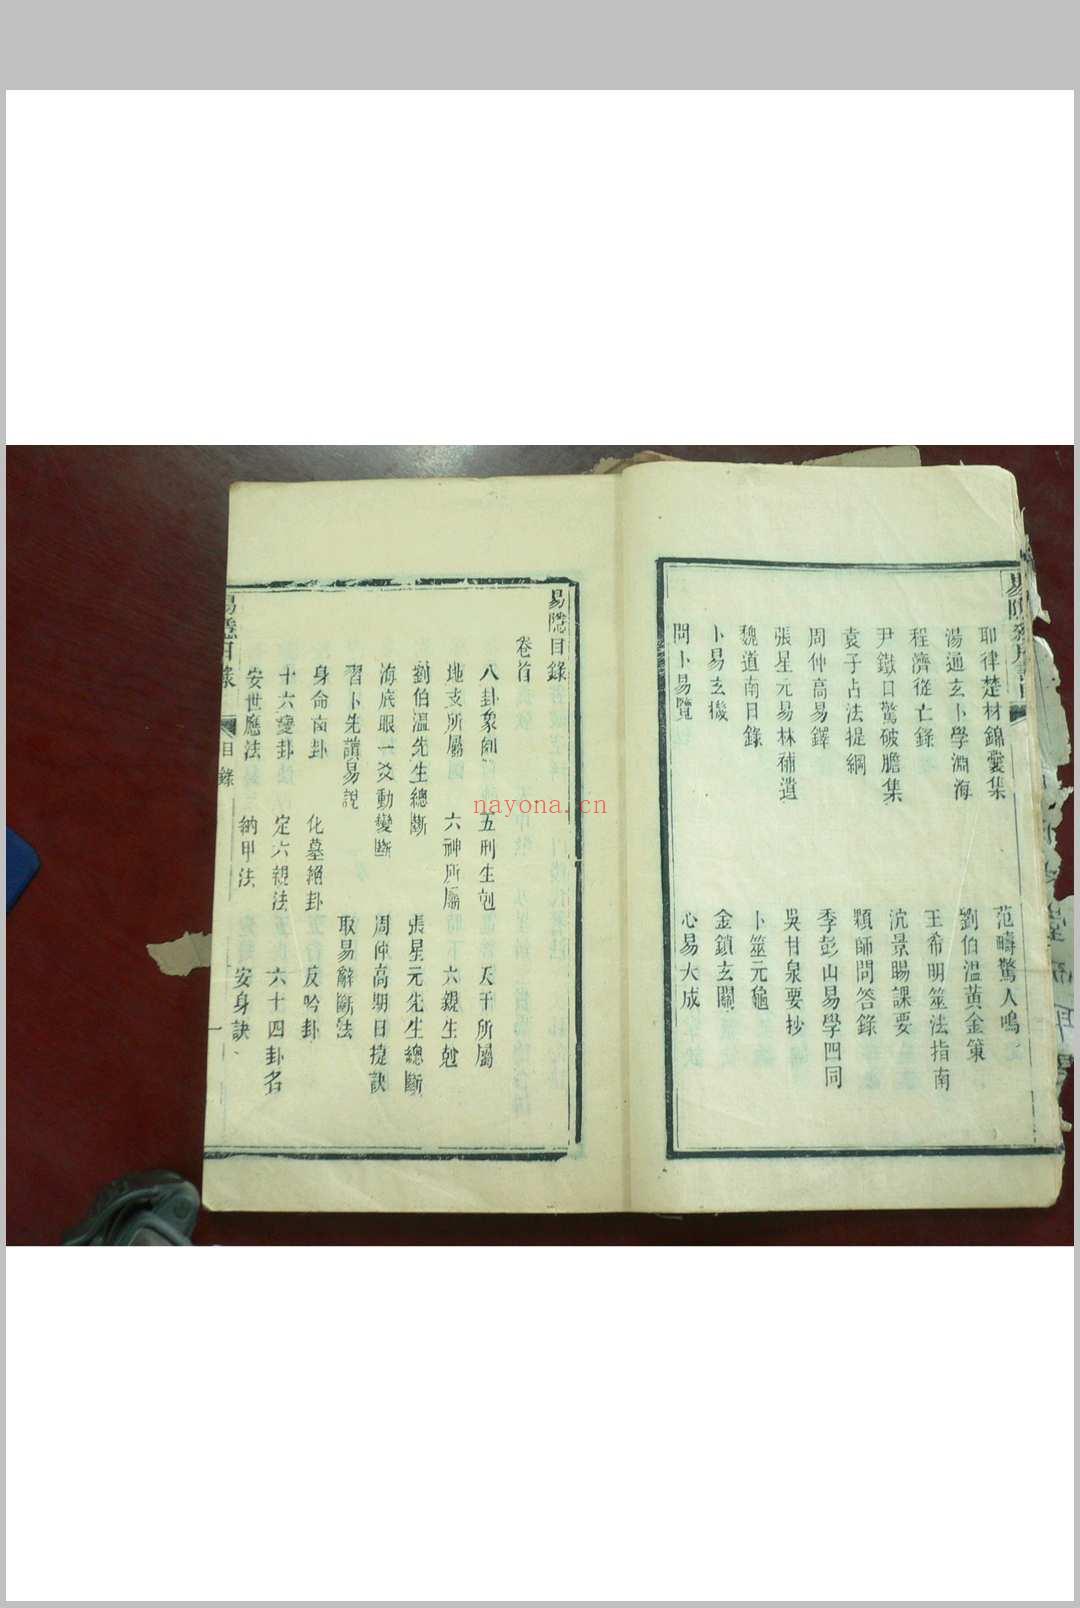 耶律楚材錦囊集
范疇驚人鳴
湯通玄卜學淵海
劉伯溫黃金策
程濟從亡錄
王希明筮法指南
尹鐵口驚破膽集
沈景暘課要
袁子占法提綱
顆師問答錄
周仲高易鐸
季彭山易學四同
張星元易林補遺
吳甘泉要抄
魏道南日錄
卜筮元龜
卜易玄機
金鎖玄關
問卜易覽
心易大成
易隱目錄
卷首
八卦象例
五刑生剋
天干所屬
地支所屬
六神所屬
六親生尅
劉伯溫先生總斷
張星元先生總斷
海底眼一爻動變斷
周仲高期日捷訣
習卜先讀易說
取易辭斷法
身命卦
化墓絕卦
反吟卦
十六變卦
定六親法
六十四卦名
安世應法
納甲法
安身訣
易隱目錄
目錄
一
nayona.cn